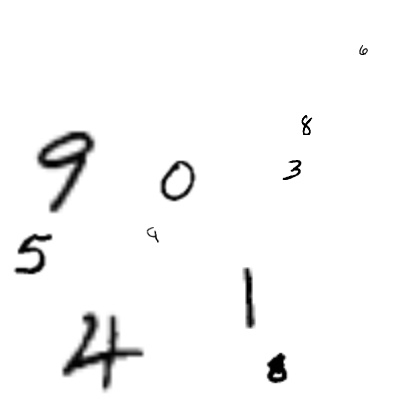 6
8
9 0 3
9
5
1
4
8